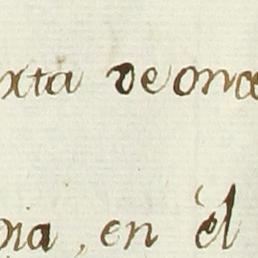 xta de once
ia, en él